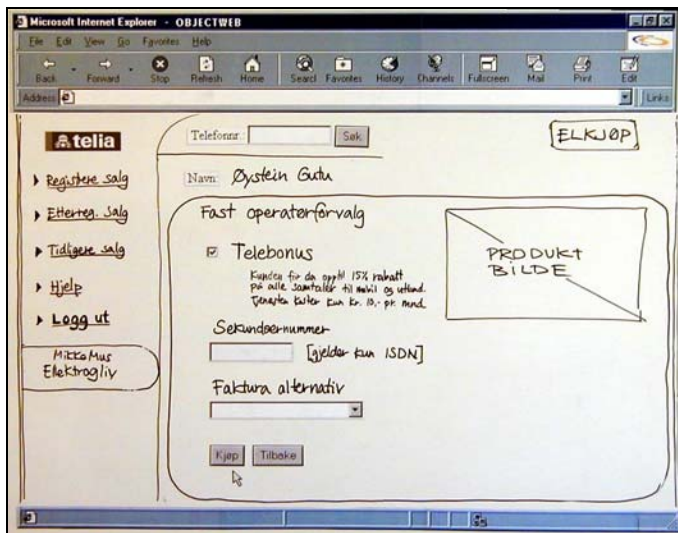 Microsoft Internet Explorer - OBJECTWEB
File Edit View Go Favorites Help
Back Forward Stop Refresh Home Search Favorites History Channels Fullscreen Mail Print Edit
Address Links
telia
Telefonnr.: Søk
ELKJØP
Navn: Øystein Gutu
Registrere salg
Etterreg. Salg
Tidligere salg
Hjelp
Logg ut
MikkeMus
Elektrogliv
Fast operatørforvalg
Telebonus
Kunden får da opptil 15% rabatt
på alle samtaler til mobil og utland.
Tjenesten koster kun kr. 10,- pr. mnd.
PRODUKT
BILDE
Sekundærnummer
[gjelder kun ISDN]
Faktura alternativ
Kjøp Tilbake